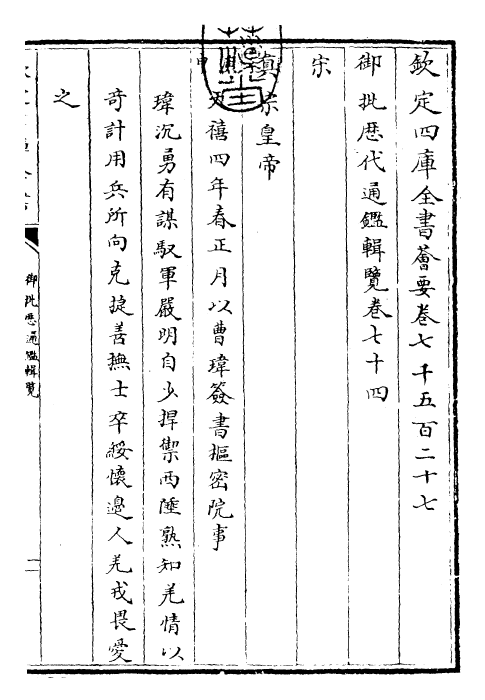 欽定四庫全書薈要卷七千五百二十七
御批歷代通鑑輯覽卷七十四
宋
真宗皇帝
天禧四年春正月以曹瑋簽書樞密院事
瑋沉勇有謀馭軍嚴明自少捍禦西陲熟知羌情以
奇計用兵所向克捷善撫士卒綏懷邊人羌戎畏愛
之
御批歷代通鑑輯覽